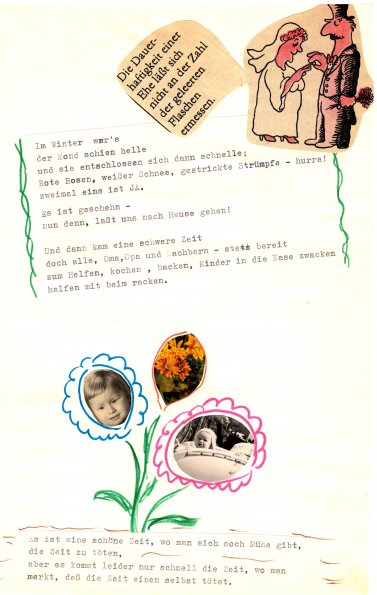 Die Dauer-
haftigkeit einer
Ehe läßt sich
nicht an der Zahl
der geleerten
Flaschen
ermessen.
Im Winter war's
der Mond schien helle
und sie entschlossen sich dann schnelle;
Rote Rosen, weißer Schnee, gestrickte Strümpfe - hurra!
zweimal eins ist JA.
Es ist geschehn -
nun denn, laßt uns nach Hause gehen!
Und dann kam eine schwere Zeit
doch alle, Oma,Opa und Nachbarn - stets bereit
zum Helfen, kochen , backen, Kinder in die Nase zwacken
halfen mit beim racken.
Es ist eine schöne Zeit, wo man sich noch Mühe gibt,
die Zeit zu töten,
aber es kommt leider nur schnell die Zeit, wo man
merkt, daß die Zeit einen selbst tötet.